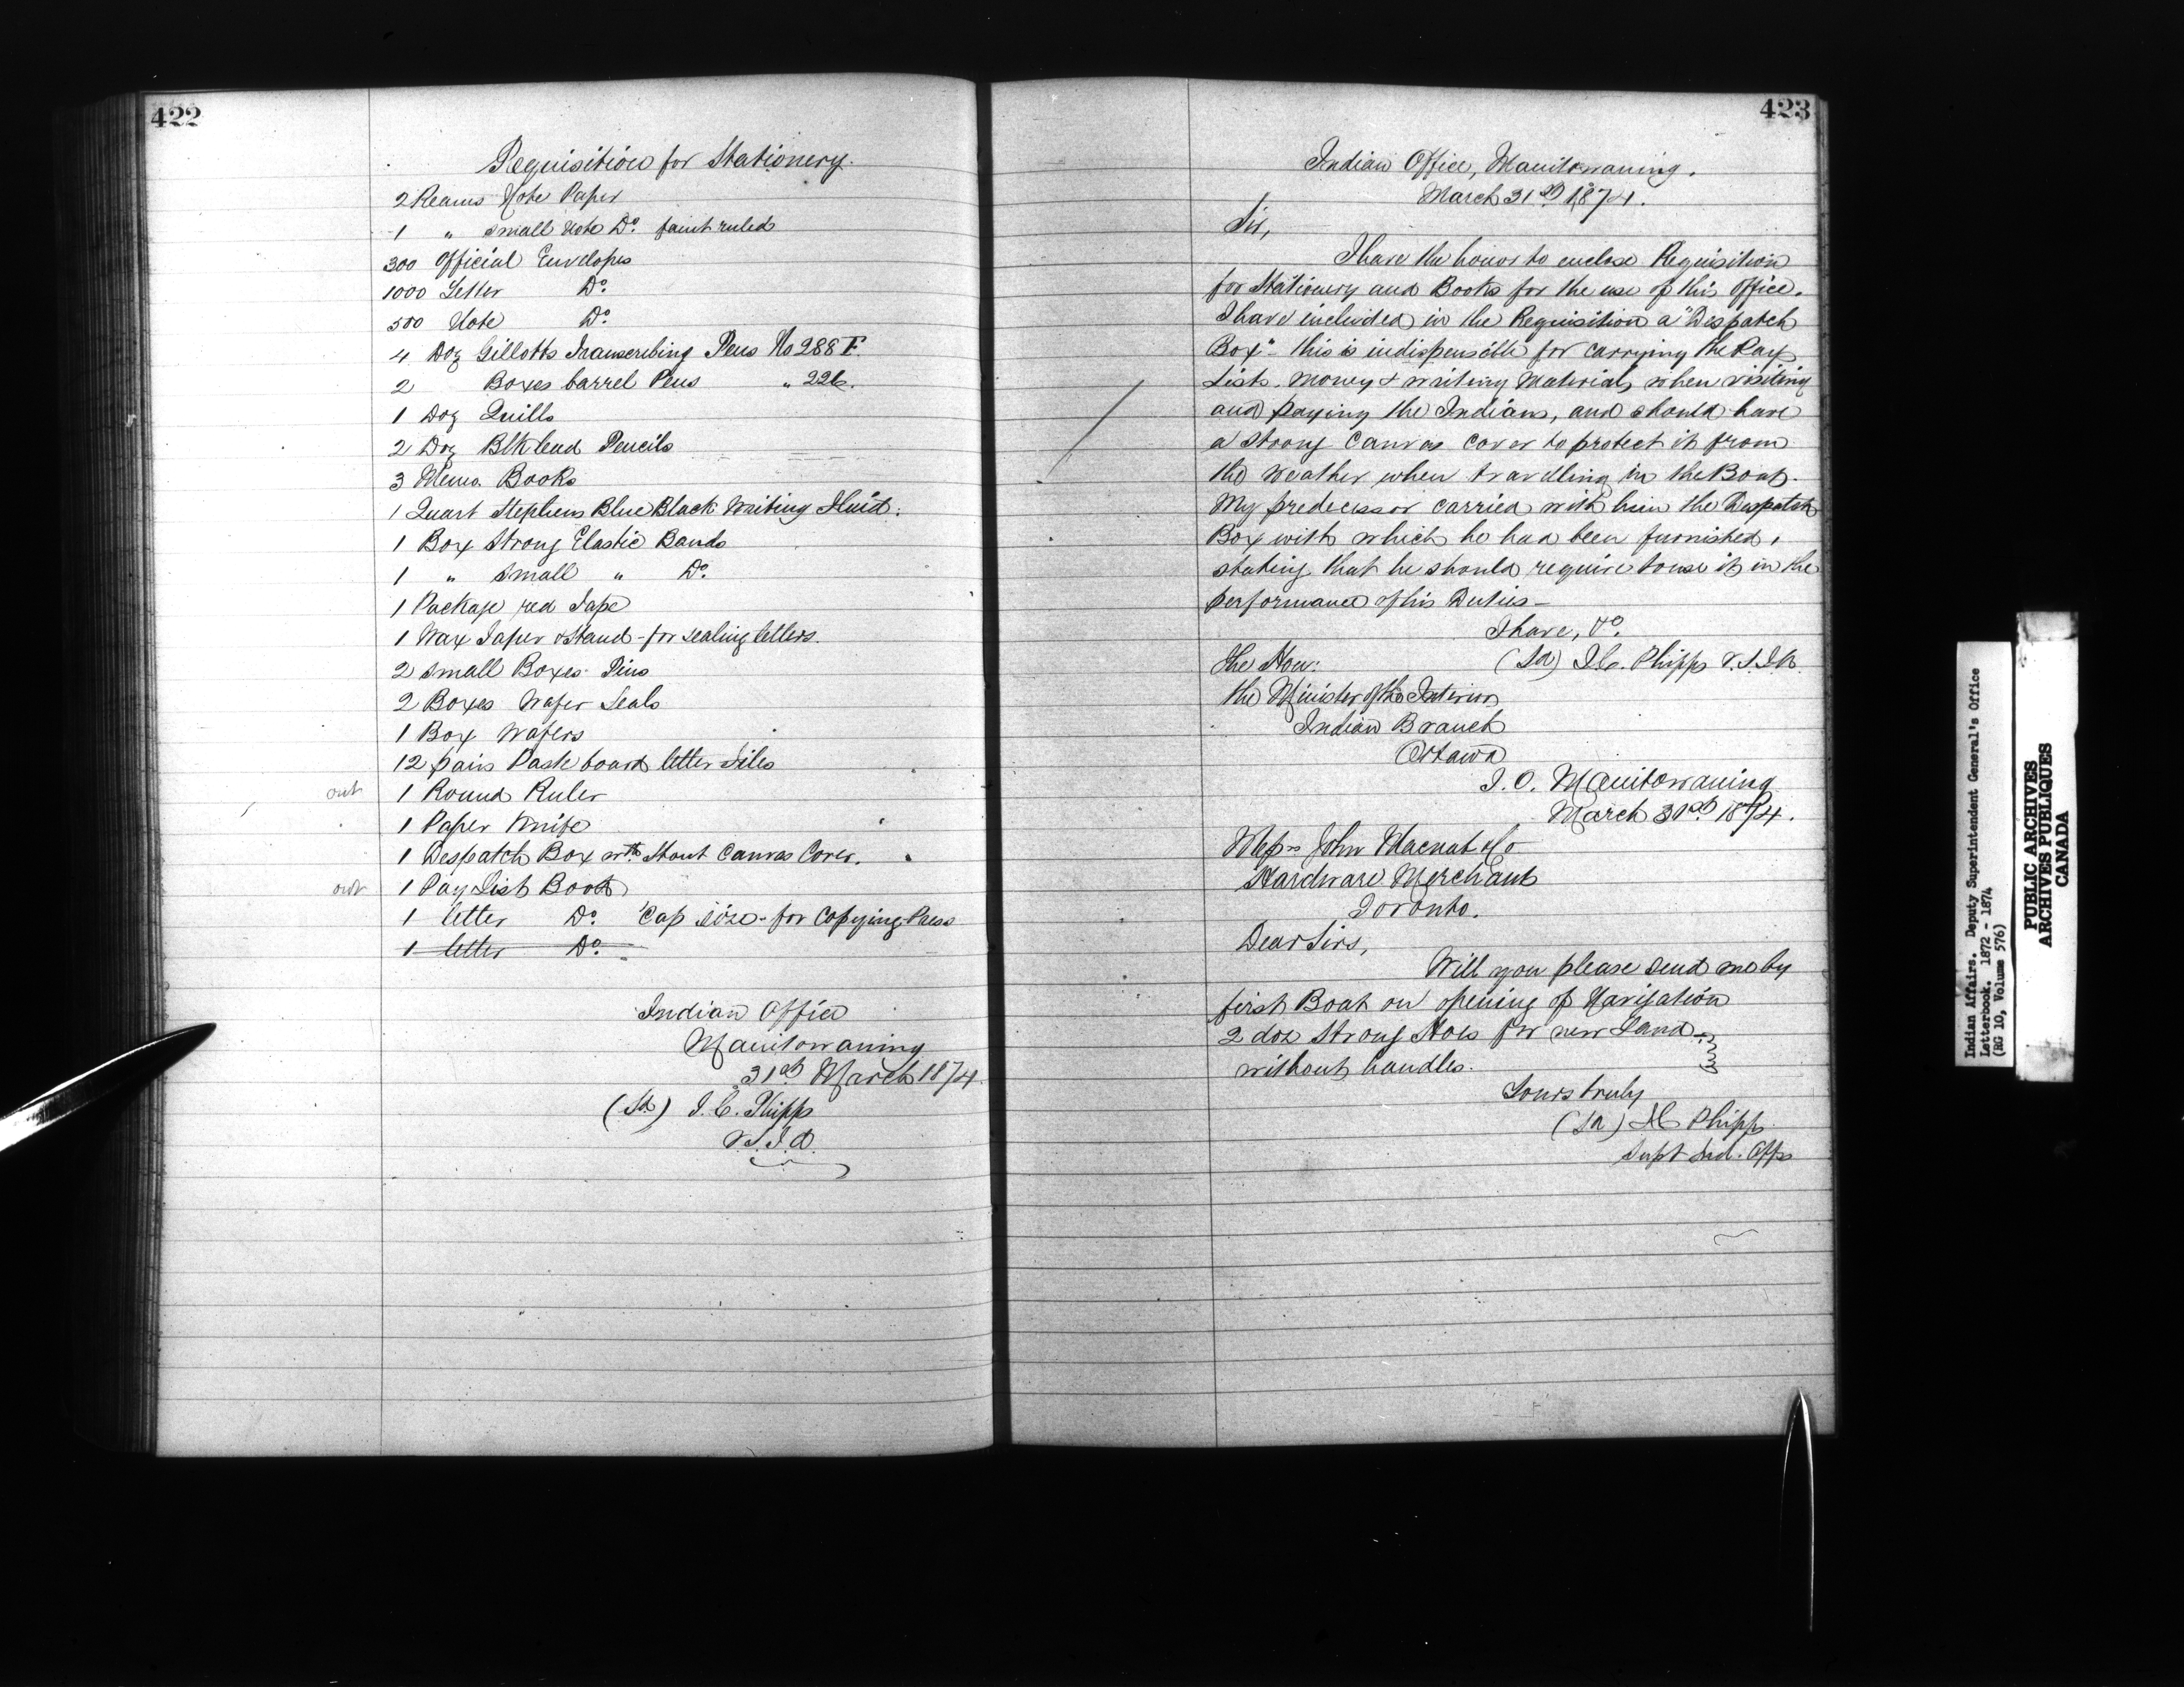 422
Requisition for Stationery.
2 Reams Note Paper
1 " small Note Do. faint ruled
300 Official Envelopes
1000 Letter Do.
500 Note Do.
4 Doz Gillotts Transcribing Pens No 288 F.
2 Boxes barrel Pens " 226.
1 Doz Quills
2 Doz Blk lead Pencils
3 Memo. Books
1 Quart Stephens Blue Black Writing Fluid.
1 Box Strong Elastic Bands
1 " Small " Do.
1 Package red Tape
1 Wax Taper & Stand - for sealing letters.
2 small Boxes Pins
2 Boxes Wafer Seals
1 Box Wafers
12 pairs Paste board letter Files
out 1 Round Ruler
1 Paper Knife
1 Despatch Box wth Stout Canvas Cover.
out 1 Pay List Book
1 letter Do. Cap size - for Copying Press
1 letter Do.
Indian Office
Manitowaning
31st March 1874.
(Sd) J. C. Phipps
V.S.I.A.
423
Indian Office, Manitowaning.
March 31st 1874.
Sir,
I have the honor to enclose Requisition
for Stationery and Books for the use of this Office.
I have included in the Requisition a "Despatch
Box" - this is indispensible for carrying the Pay
Lists, Money & writing Materials when visiting
and paying the Indians, and should have
a strong Canvas Cover to protect it from
the Weather when travelling in the Boat.
My predecessor carried with him the Despatch
Box with which he had been furnished,
stating that he should require to use it in the
performance of his Duties -
I have, &c.
The Hon: (Sd) J.C. Phipps V.S.I.A.
the Minister of the Interior
Indian Branch
Ottawa
I. O. Manitowaning
March 31st 1874.
Messrs John Macnab & Co
Hardware Merchant
Toronto.
Dear Sirs,
Will you please send me by
first Boat on opening of Navigation
2 doz Strong Hoes for new Land -
without handles.
Yours truly
(Sd) JC Phipps
Supt Ind. Affs
Indian Affairs. Deputy Superintendent General's Office
Letterbook. 1872 - 1874
(RG 10, Volume 576)
PUBLIC ARCHIVES
ARCHIVES PUBLIQUES
CANADA